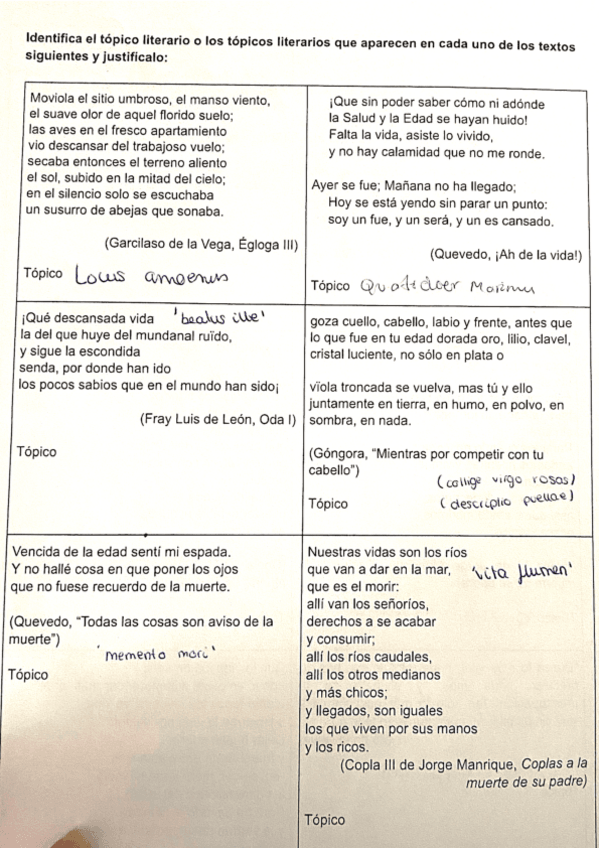 Identifica el tópico literario o los tópicos literarios que aparecen en cada uno de los textos
siguientes y justifícalo:
Moviola el sitio umbroso, el manso viento,
el suave olor de aquel florido suelo;
las aves en el fresco apartamiento
vio descansar del trabajoso vuelo;
secaba entonces el terreno aliento
el sol, subido en la mitad del cielo;
en el silencio solo se escuchaba
un susurro de abejas que sonaba.
(Garcilaso de la Vega, Égloga III)
Tópico Locus amoenus
¡Que sin poder saber cómo ni adónde
la Salud y la Edad se hayan huido!
Falta la vida, asiste lo vivido,
y no hay calamidad que no me ronde.
Ayer se fue; Mañana no ha llegado;
Hoy se está yendo sin parar un punto:
soy un fue, y un será, y un es cansado.
(Quevedo, ¡Ah de la vida!)
Tópico
¡Qué descansada vida 'beatus ille'
la del que huye del mundanal ruïdo,
y sigue la escondida
senda, por donde han ido
los pocos sabios que en el mundo han sido¡
(Fray Luis de León, Oda I)
Tópico
goza cuello, cabello, labio y frente, antes que
lo que fue en tu edad dorada oro, lilio, clavel,
cristal luciente, no sólo en plata o
vïola troncada se vuelva, mas tú y ello
juntamente en tierra, en humo, en polvo, en
sombra, en nada.
(Góngora, "Mientras por competir con tu
cabello")
(collige virgo rosas)
Tópico (descriptio puellae)
Vencida de la edad sentí mi espada.
Y no hallé cosa en que poner los ojos
que no fuese recuerdo de la muerte.
(Quevedo, "Todas las cosas son aviso de la
muerte")
'memento mori'
Tópico
Nuestras vidas son los ríos
que van a dar en la mar, 'vita flumen'
que es el morir:
allí van los señoríos,
derechos a se acabar
y consumir;
allí los ríos caudales,
allí los otros medianos
y más chicos;
y llegados, son iguales
los que viven por sus manos
y los ricos.
(Copla III de Jorge Manrique, Coplas a la
muerte de su padre)
Tópico